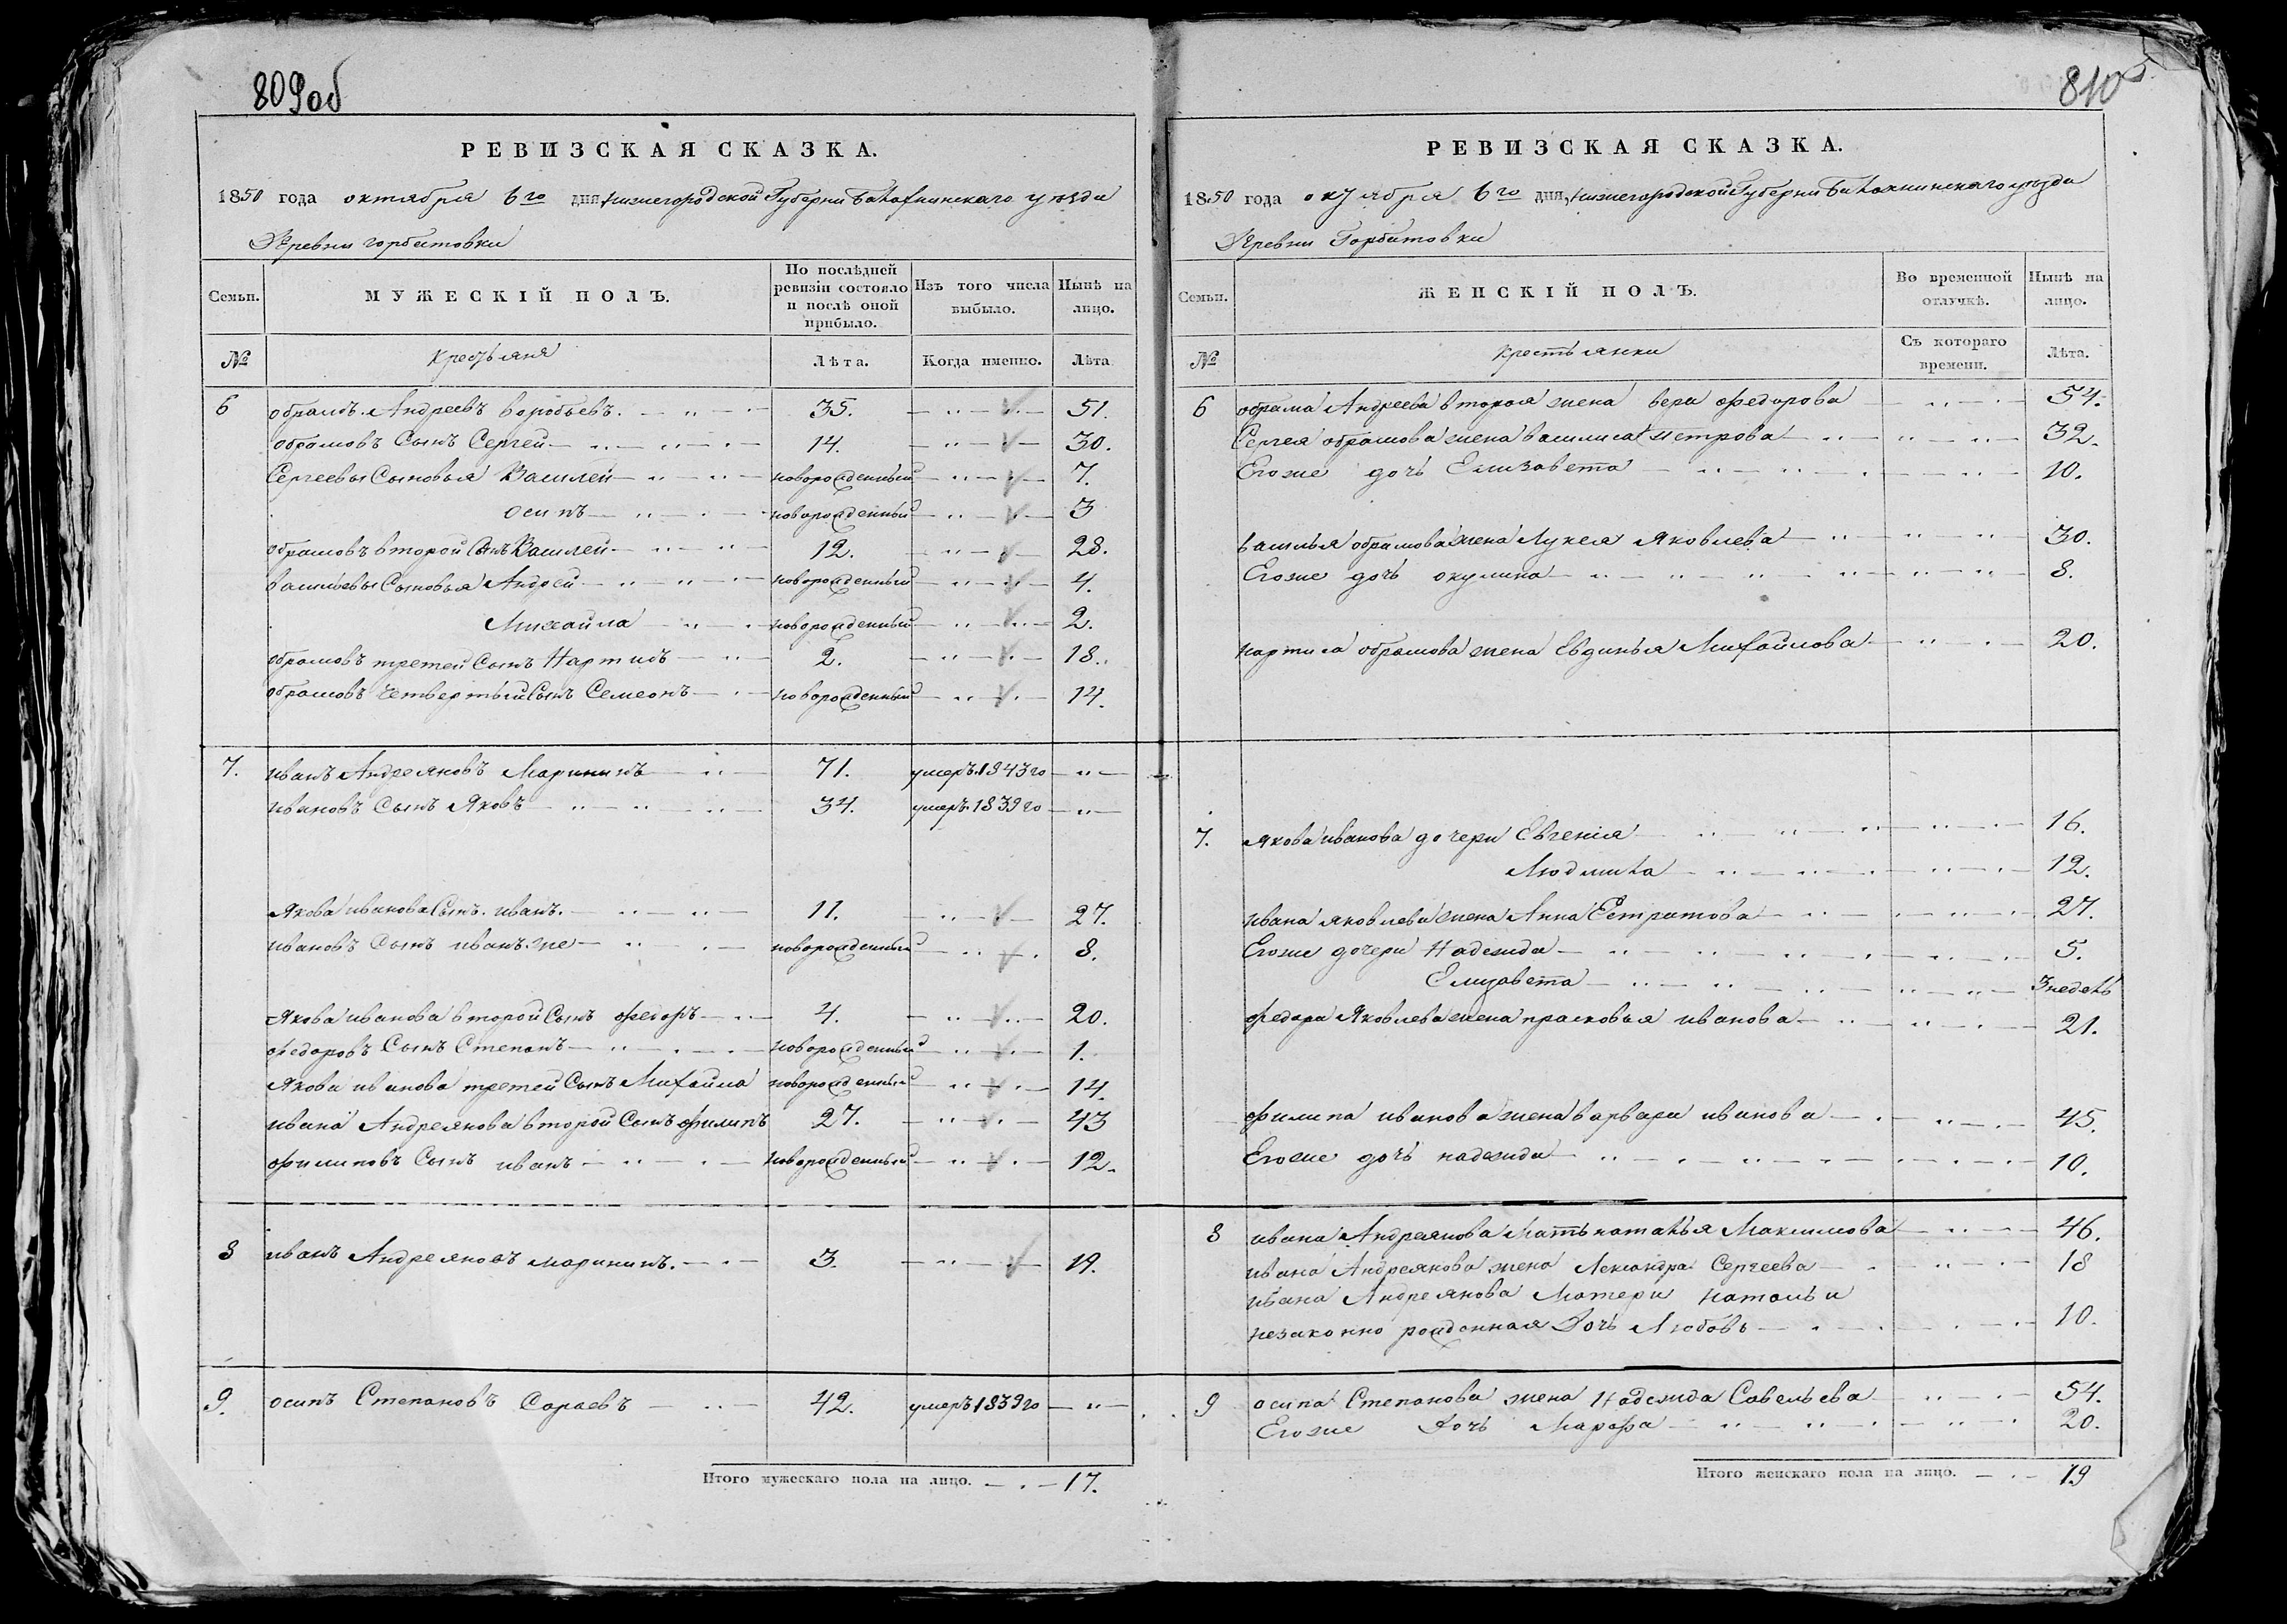 809об
РЕВИЗСКАЯ СКАЗКА.
1850 года октября 6го дня Нижегородской Губерни Балахнинскаго уезда
Деревни горбатовки
Семьи. МУЖЕСКІЙ ПОЛЪ. По послѣдней ревизіи состояло и послѣ оной прибыло. Изъ того числа выбыло. Нынѣ на лицо.
№ Крестьяня Лѣта. Когда именно. Лѣта
6 обрамъ Андреевъ воробьевъ. 35. 51.
обрамовъ Сынъ Сергей 14. 30.
Сергеевы Сыновья Василей новорожденный 7.
осипъ новорожденный 3
обрамовъ второй Сынъ Василей 12. 28.
васильевы Сыновья Андрей новорожденный 4.
Михайла новорожденный 2.
обрамовъ третей Сынъ Партинъ 2. 18.
обрамовъ четвертый Сынъ Семеонъ новорожденный 14.
7. иванъ Андреяновъ Марининъ 71. умеръ 1843го
ивановъ Сынъ Яковъ 34. умеръ 1839го
Якова иванова Сынъ иванъ. 11. 27.
ивановъ Сынъ иванъ же новорожденный 8.
Якова иванова второй Сынъ федоръ 4. 20.
федоровъ Сынъ Степанъ новорожденный 1.
Якова иванова третей Сынъ Михайла новорожденный 14.
ивана Андреянова второй Сынъ филипъ 27. 43
филиповъ Сынъ иванъ новорожденный 12.
8 иванъ Андреяновъ марининъ. 3. 19.
9. осипъ Степановъ Сараевъ 42. умеръ 1839го
Итого мужескаго пола на лицо. 17.
810
РЕВИЗСКАЯ СКАЗКА.
1850 года октября 6го дня, Нижегородской Губерни Балахнинскаго уезда
Деревни Горбатовки
Семьи. ЖЕНСКІЙ ПОЛЪ. Во временной отлучкѣ. Нынѣ на лицо.
№ Крестьянки Съ котораго времени. Лѣта.
6 обрама Андреева вторая жена вера федорова 54.
Сергея обрамова жена василиса Петрова 32.
Егоже дочь Елизавета 10.
василья обрамова жена Лукея Яковлева 30.
Егоже дочь окулина 8.
партина обрамова жена Евдинья Михайлова 20.
7. Якова иванова дочери Евгенія 16.
Людмила 12.
ивана яковлева жена Анна Естратова 27.
Егоже дочери Надежда 5.
Елизавета 3 недель
федора Яковлева жена прасковья иванова 21.
филипа иванова жена варвара иванова 45.
Егоже дочь надежда 10.
8 ивана Андреянова Мать наталья Максимова 46.
ивана Андреянова жена Александра Сергеева 18
ивана Андреянова Матери натальи
незаконно рожденная Дочь Любовь 10.
9 осипа Степанова жена Надежда Савельева 54.
Егоже Дочь Марфа 20.
Итого женскаго пола на лицо. 19